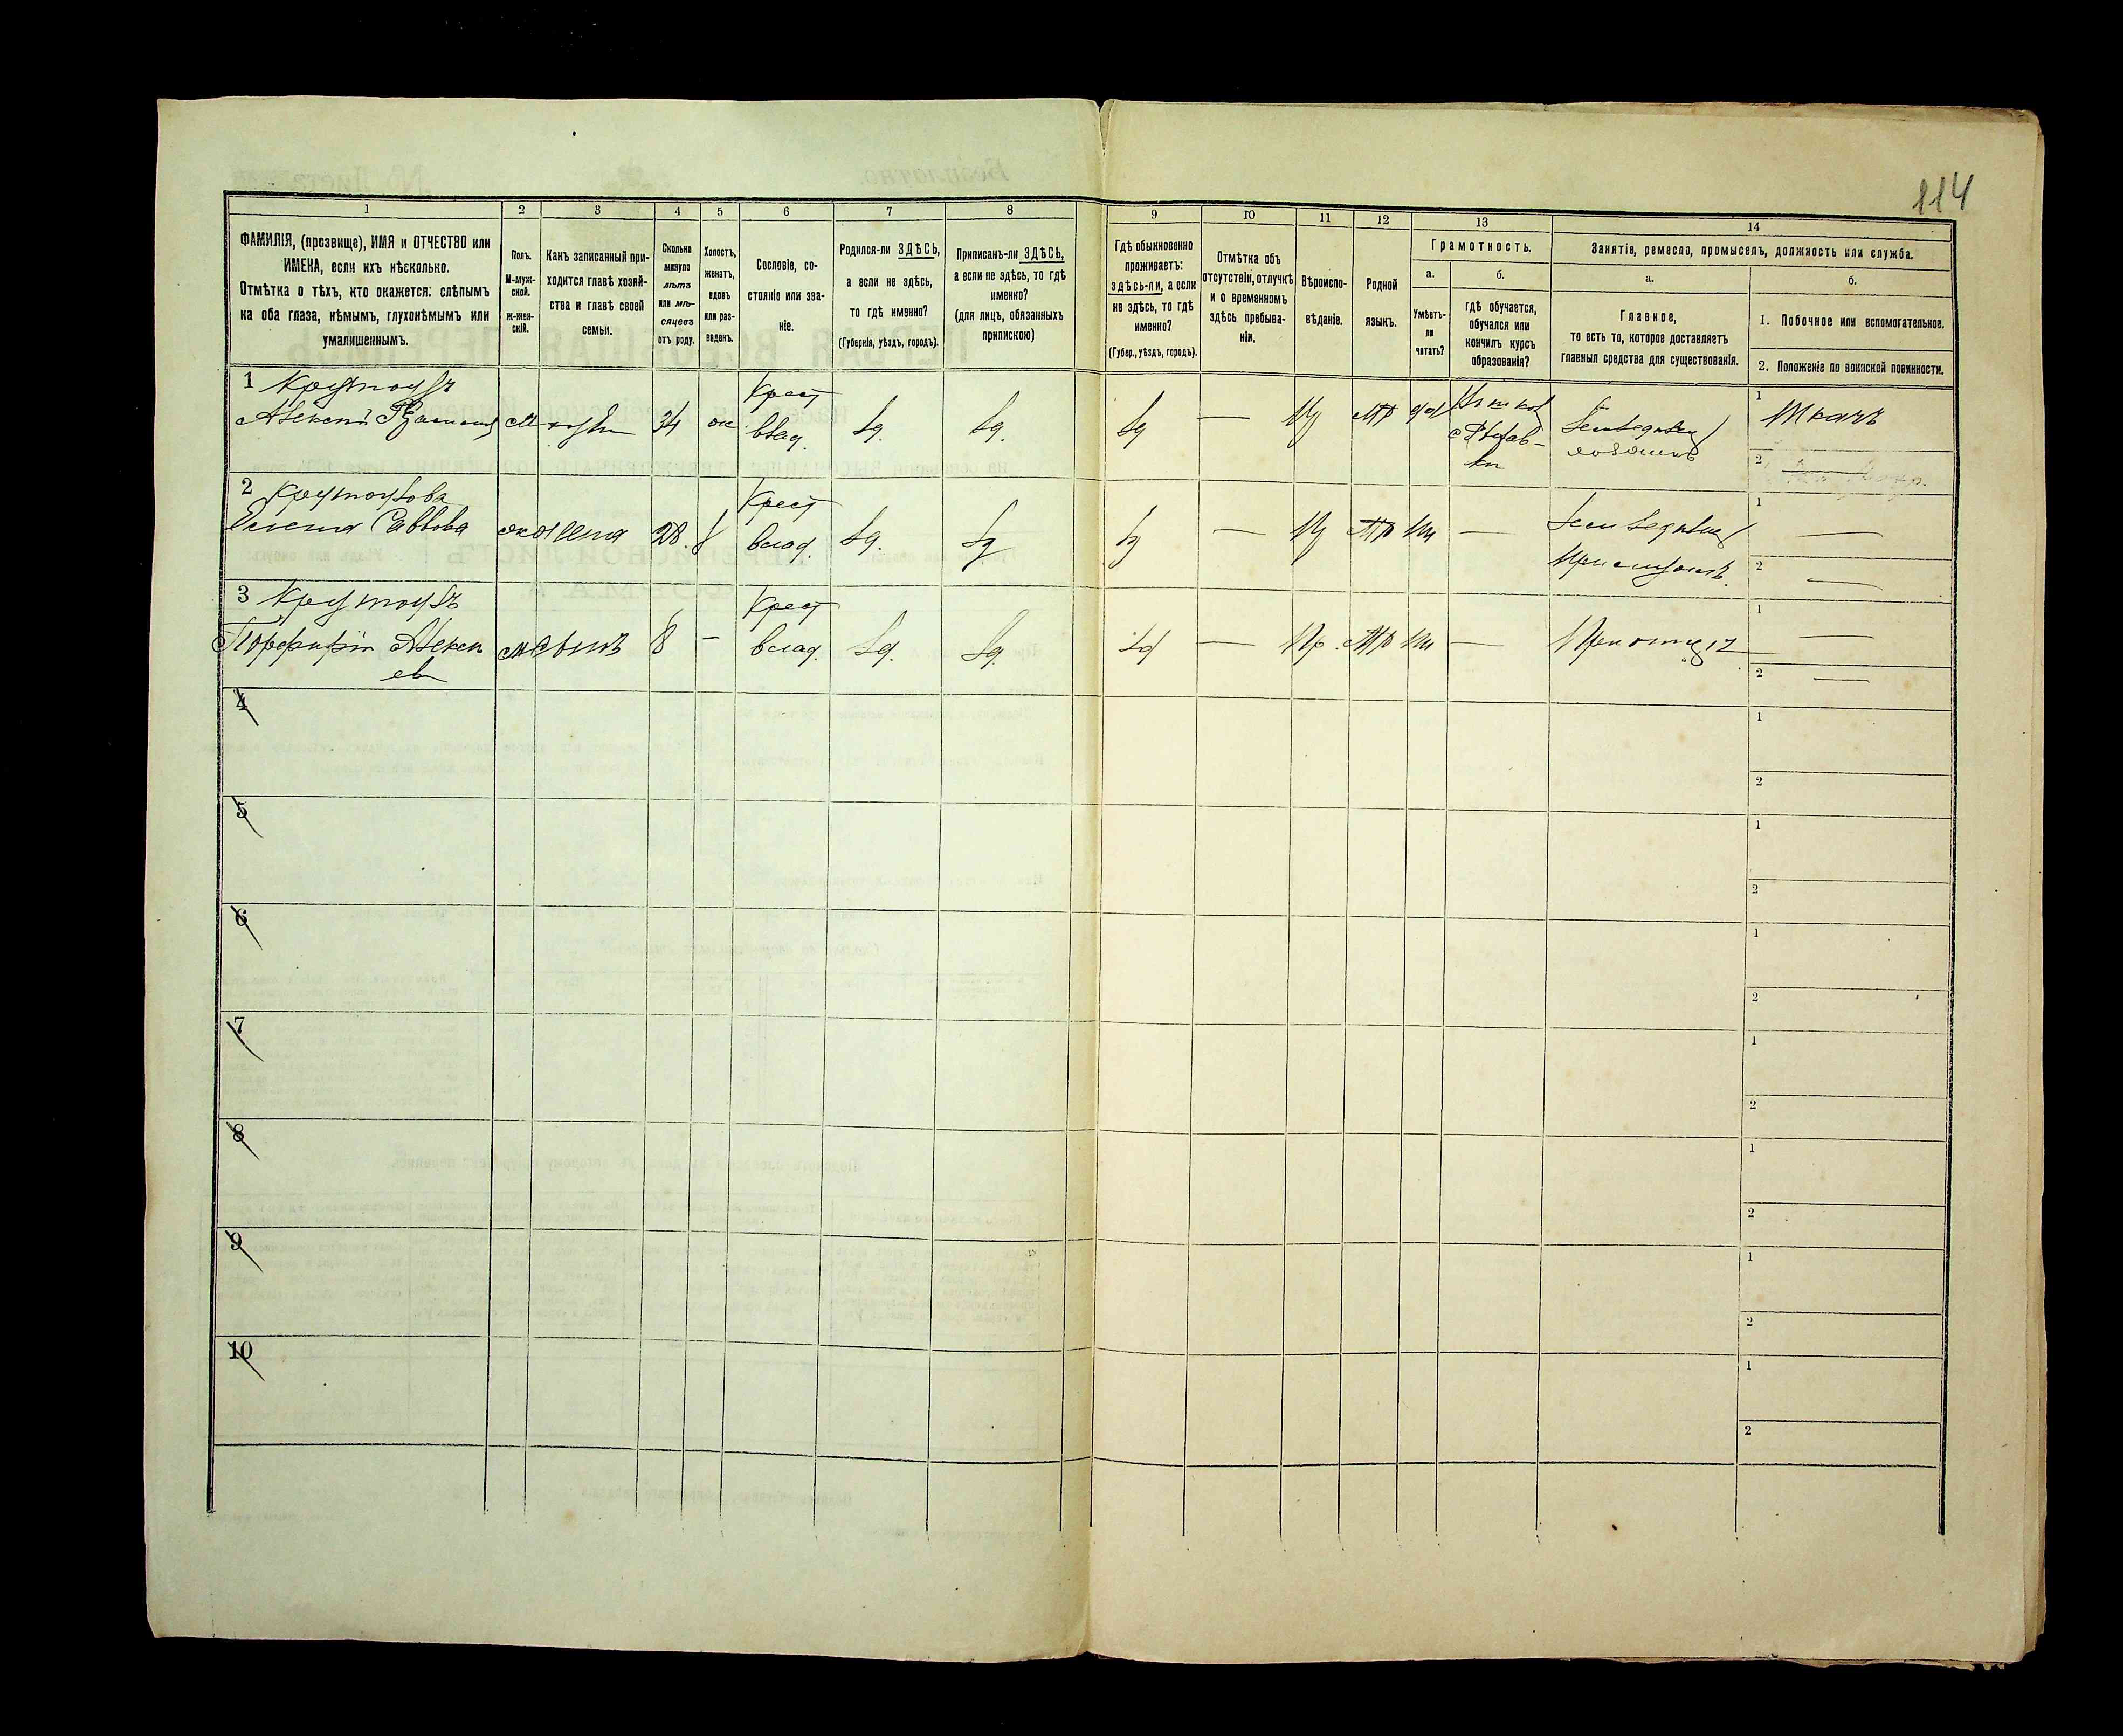 114
1 2 3 4 5 6 7 8 9 10 11 12 13 14
ФАМИЛІЯ, (прозвище), ИМЯ и ОТЧЕСТВО или
ИМЕНА, если ихъ нѣсколько.
Отмѣтка о тѣхъ, кто окажется: слѣпымъ
на оба глаза, нѣмымъ, глухонѣмымъ или
умалишеннымъ.
Полъ.
М-муж-
ской.
ж-жен-
скій.
Какъ записанный при-
ходится главѣ хозяй-
ства и главѣ своей
семьи.
Сколько
минуло
лѣтъ
или мѣ-
сяцевъ
отъ роду.
Холостъ,
женатъ,
вдовъ
или раз-
веденъ.
Сословіе, со-
стояніе или зва-
ніе.
Родился-ли ЗДѢСЬ,
а если не здѣсь,
то гдѣ именно?
(Губернія, уѣздъ, городъ).
Приписанъ-ли ЗДѢСЬ,
а если не здѣсь, то гдѣ
именно?
(для лицъ, обязанныхъ
припискою)
Гдѣ обыкновенно
проживаетъ:
здѣсь-ли, а если
не здѣсь, то гдѣ
именно?
(Губер., уѣздъ, городъ).
Отмѣтка объ
отсутствіи, отлучкѣ
и о временномъ
здѣсь пребыва-
ніи.
Вѣроиспо-
вѣданіе.
Родной
языкъ.
Грамотность.
а.
Умѣетъ-
ли
читать?
б.
гдѣ обучается,
обучался или
кончилъ курсъ
образованія?
Занятіе, ремесло, промыселъ, должность или служба.
а.
Главное,
то есть то, которое доставляетъ
главныя средства для существованія.
б.
1. Побочное или вспомогательное.
2. Положеніе по воинской повинности.
1 Крутоузъ
Алексѣй м 34 Крест
влад. Зд. Зд. Зд — МР да 1 Ткачъ
2
2 Крутоузова
Елена Саввова ж жена 28 Крест
влад. Зд. Зд Зд — МР — 1 —
2 —
3 Крутоузъ
Порфирій Алексѣ
ев м сынъ 8 — Крест
влад. Зд. Зд. Зд — Пр. МР — При отцѣ 1 —
2 —
4 1
2
5 1
2
6 1
2
7 1
2
8 1
2
9 1
2
10 1
2